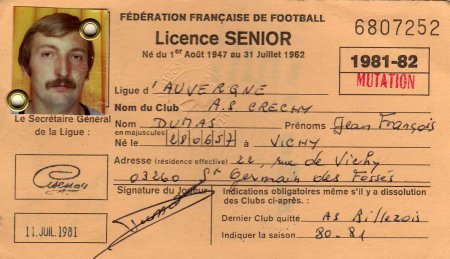 FÉDÉRATION FRANÇAISE DE FOOTBALL
Licence SENIOR
6807252
Né du 1er Août 1947 au 31 Juillet 1962
1981-82
MUTATION
Ligue d'AUVERGNE
Nom du Club A.S CRECHY
Le Secrétaire Général de la Ligue :
Nom DUMAS Prénoms Jean François
en majuscules
Né le 280657 à VICHY
Adresse (résidence effective) 22, rue de Vichy
03260 St Germain des Fossés
Signature du Joueur
Indications obligatoires même s'il y a dissolution des Clubs ci-après :
Dernier Club quitté AS Billezois
Indiquer la saison 80-81
11 JUIL 1981